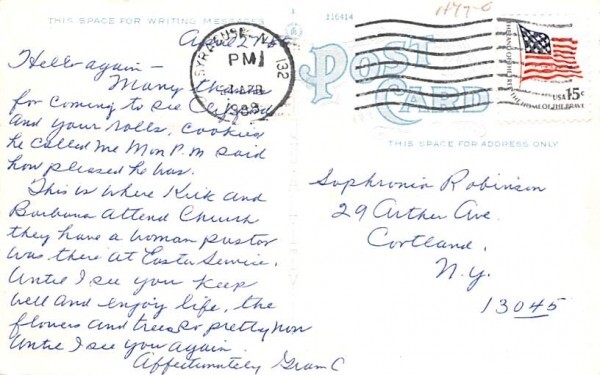 THIS SPACE FOR WRITING MESSAGES
116414
April 27
Hello again –
Many thanks
for coming to see
and your rolls, cookies
he called me Mon P.M said
how pleased he was.
This is where Kirk and
Barbara attend Church
they have a woman pastor
was there at Easter Service.
Until I see you keep
well and enjoy life, the
flowers and trees so pretty now
Until I see you again.
Affectionately Gram C
SYRACUSE, NY 132
PM
POST CARD
USA 15c
THE HOME OF THE BRAVE
THIS SPACE FOR ADDRESS ONLY
Sophronia Robinson
29 Arthur Ave.
Cortland,
N.Y.
13045